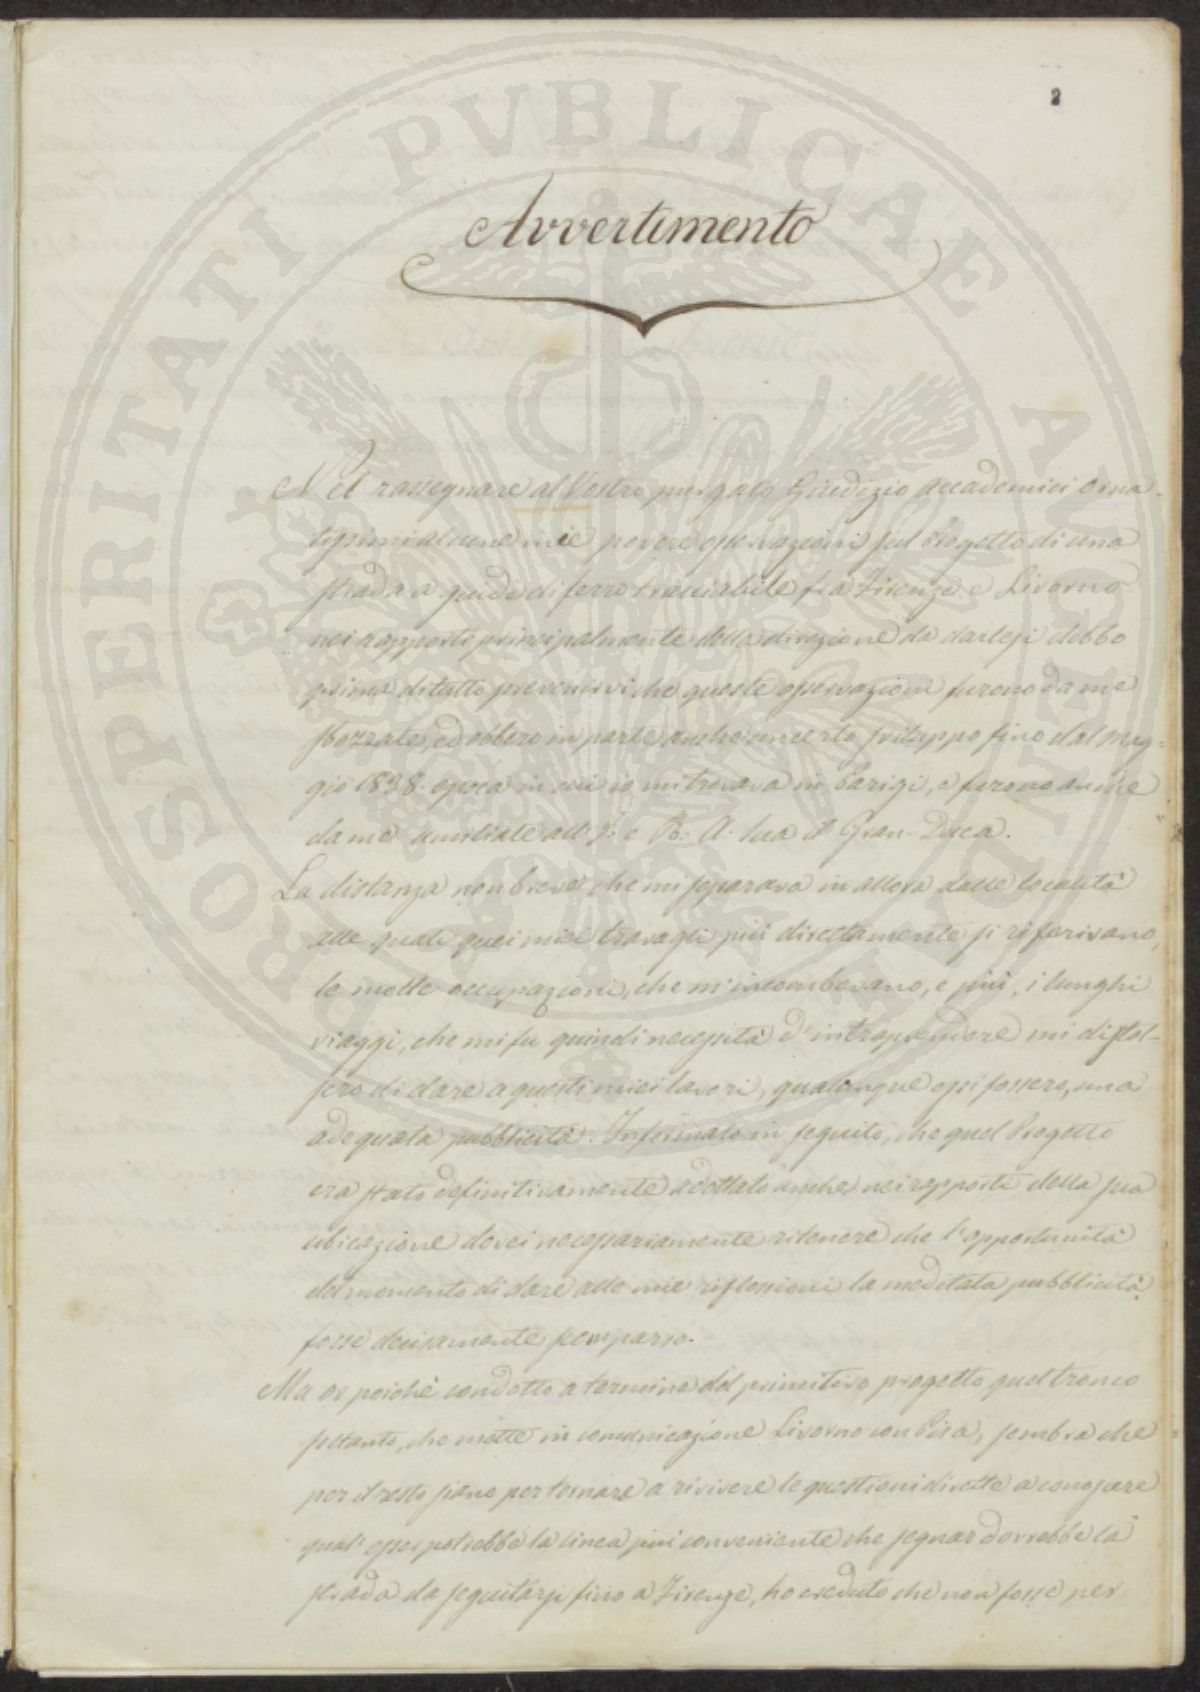 2
PROSPERITATI PUBLICAE AUGENDAE
Avvertimento
Nel rassegnare al Vostro purgato Giudizio accademici orna-
tissimi alcune mie povere osservazioni sul Progetto di una
strada a guide di ferro tracciabile fra Firenze e Livorno
nei rapporti principalmente della direzione da darlesi debbo
prima di tutto prevenirvi che queste osservazioni furono da me
sbozzate, ed ebbero in parte anche un certo sviluppo fino dal mag-
gio 1838. epoca in cui io mi trovava in Parigi, e furono anche
da me umiliate all'I. e R. A. Sua il Gran-Duca.
La distanza non breve che mi separava in allora dalle località
alle quali quei miei travagli più direttamente si riferivano,
le molte occupazioni, che m'incombevano, e più, i lunghi
viaggi, che mi fu quindi necessità d'intraprendere mi distol-
sero di dare a questi miei lavori, qualunque essi fossero, una
adequata pubblicità. Informato in seguito, che quel Progetto
era stato definitivamente adottato anche nei rapporti della sua
ubicazione dovei necessariamente ritenere che l'opportunità
del momento di dare alle mie riflessioni la meditata pubblicità
fosse decisamente scomparso.
Ma or poichè condotto a termine del primitivo progetto quel tronco
soltanto, che mette in comunicazione Livorno con Pisa, sembra che
per il resto siano per tornare a rivivere le questioni dirette a conoscere
qual' esser potrebbe la linea più conveniente che segnar dovrebbe la
strada da seguitarsi fino a Firenze, ho creduto che non fosse per